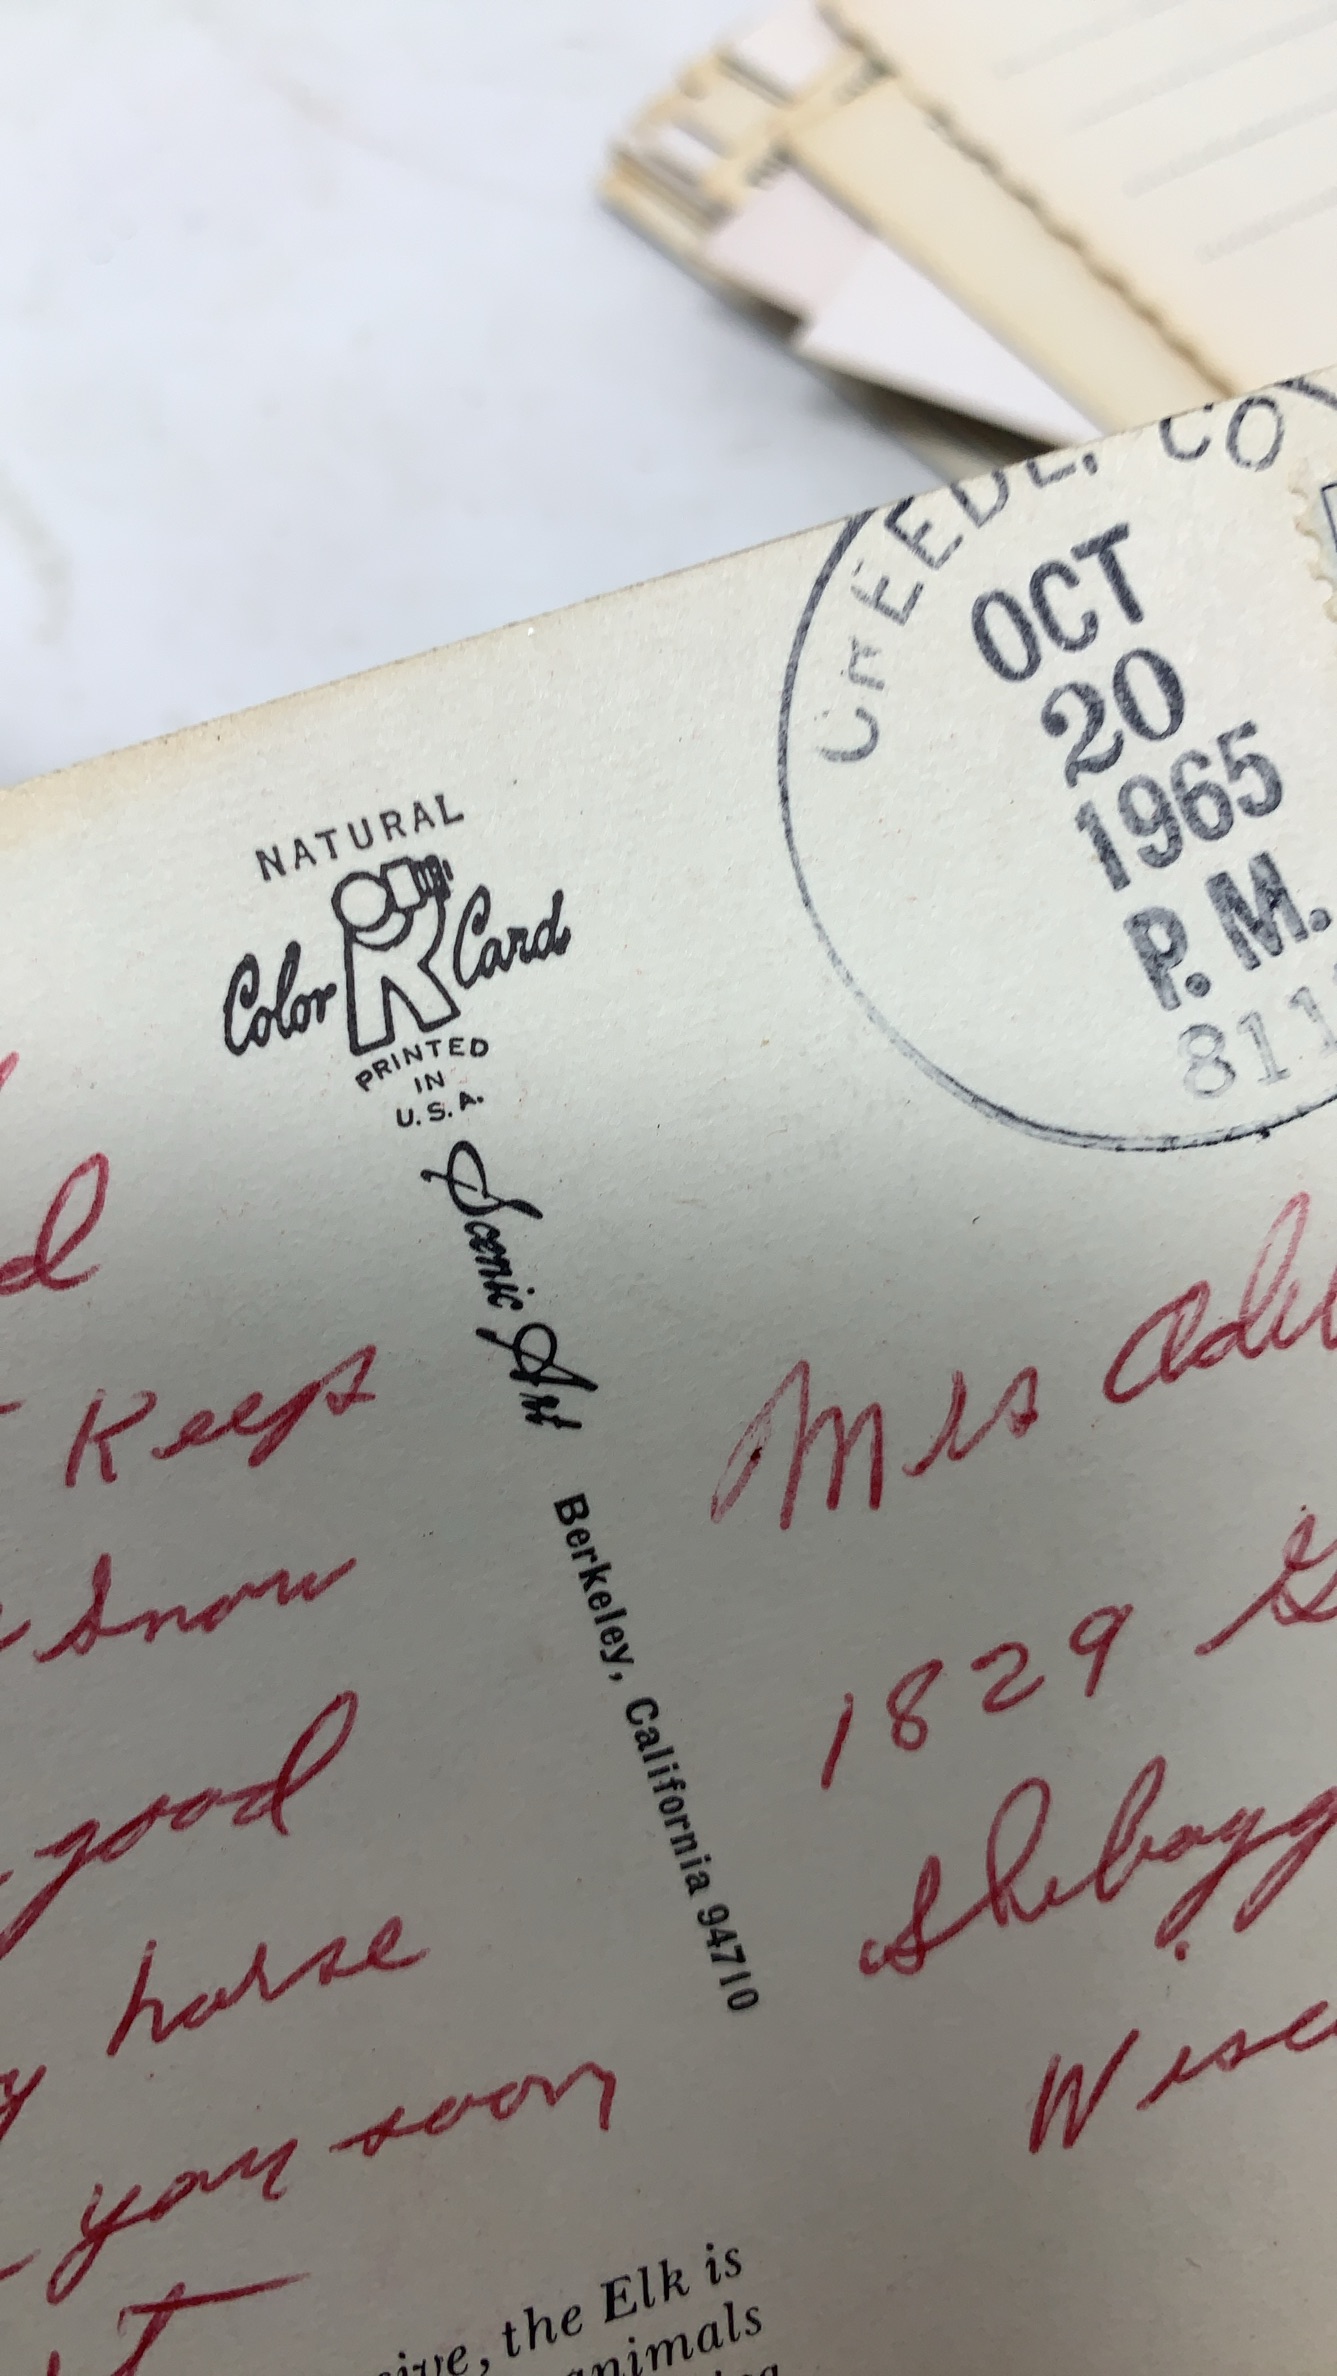 CREEDE, CO
OCT
20
1965
P.M.
811
NATURAL
Color R Card
PRINTED
IN
U.S.A.
Scenic Art
Berkeley, California 94710
Keeps
Snow
good
horse
you soon
Mrs Adel
1829 G
Sheboyg
Wisc
, the Elk is
animals